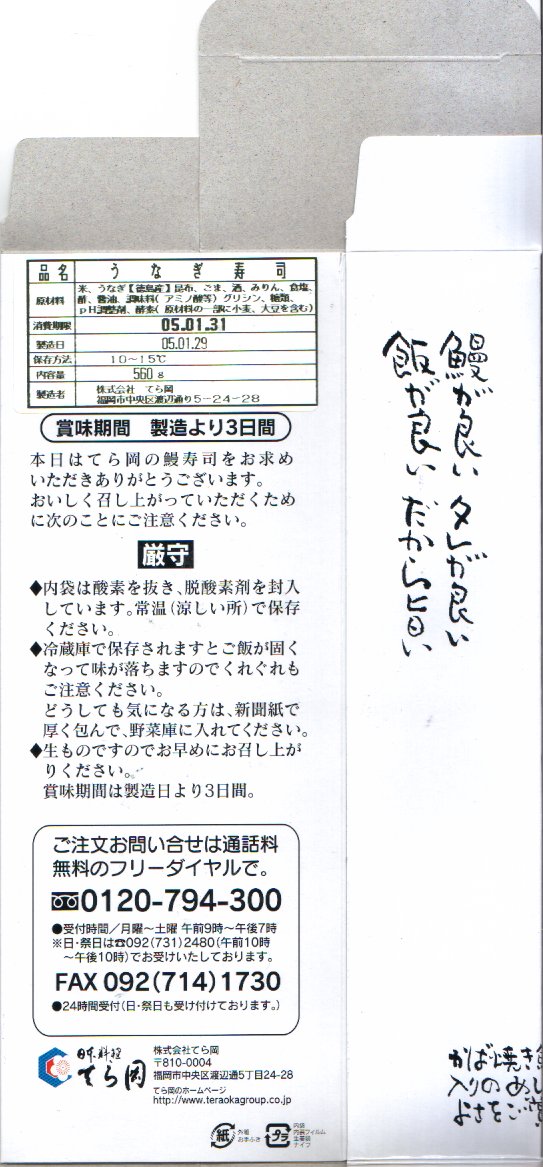 品名 うなぎ寿司
原材料 米、うなぎ【徳島産】昆布、ごま、酒、みりん、食塩、
酢、醤油、調味料(アミノ酸等)グリシン、糖類、
pH調整剤、酵素(原材料の一部に小麦、大豆を含む)
消費期限 05.01.31
製造日 05.01.29
保存方法 10~15℃
内容量 560g
製造者 株式会社 てら岡
福岡市中央区渡辺通り5-24-28
賞味期間 製造より3日間
本日はてら岡の鰻寿司をお求め
いただきありがとうございます。
おいしく召し上がっていただくため
に次のことにご注意ください。
厳守
◆内袋は酸素を抜き、脱酸素剤を封入
しています。常温(涼しい所)で保存
ください。
◆冷蔵庫で保存されますとご飯が固く
なって味が落ちますのでくれぐれも
ご注意ください。
どうしても気になる方は、新聞紙で
厚く包んで、野菜庫に入れてください。
◆生ものですのでお早めにお召し上が
りください。
賞味期間は製造日より3日間。
ご注文お問い合せは通話料
無料のフリーダイヤルで。
0120-794-300
●受付時間/月曜~土曜 午前9時~午後7時
※日・祭日は☎092(731)2480(午前10時
~午後10時)でお受けいたしております。
FAX 092(714)1730
●24時間受付(日・祭日も受け付けております。)
日本料理
てら岡
株式会社てら岡
〒810-0004
福岡市中央区渡辺通5丁目24-28
てら岡のホームページ
http://www.teraokagroup.co.jp
紙
外箱
おきふき
プラ
内袋
内装フィルム
生姜袋
ナイフ
鰻が良い タレが良い
飯が良い だから旨い
かば焼き
入りのめし
よさをご